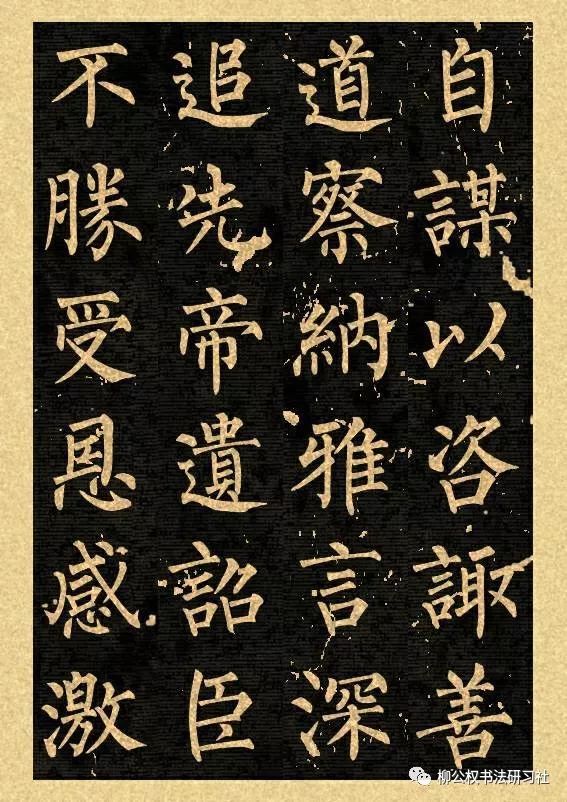 自謀以咨諏善
道察納雅言深
追先帝遺詔臣
不勝受恩感激
柳公权书法研习社